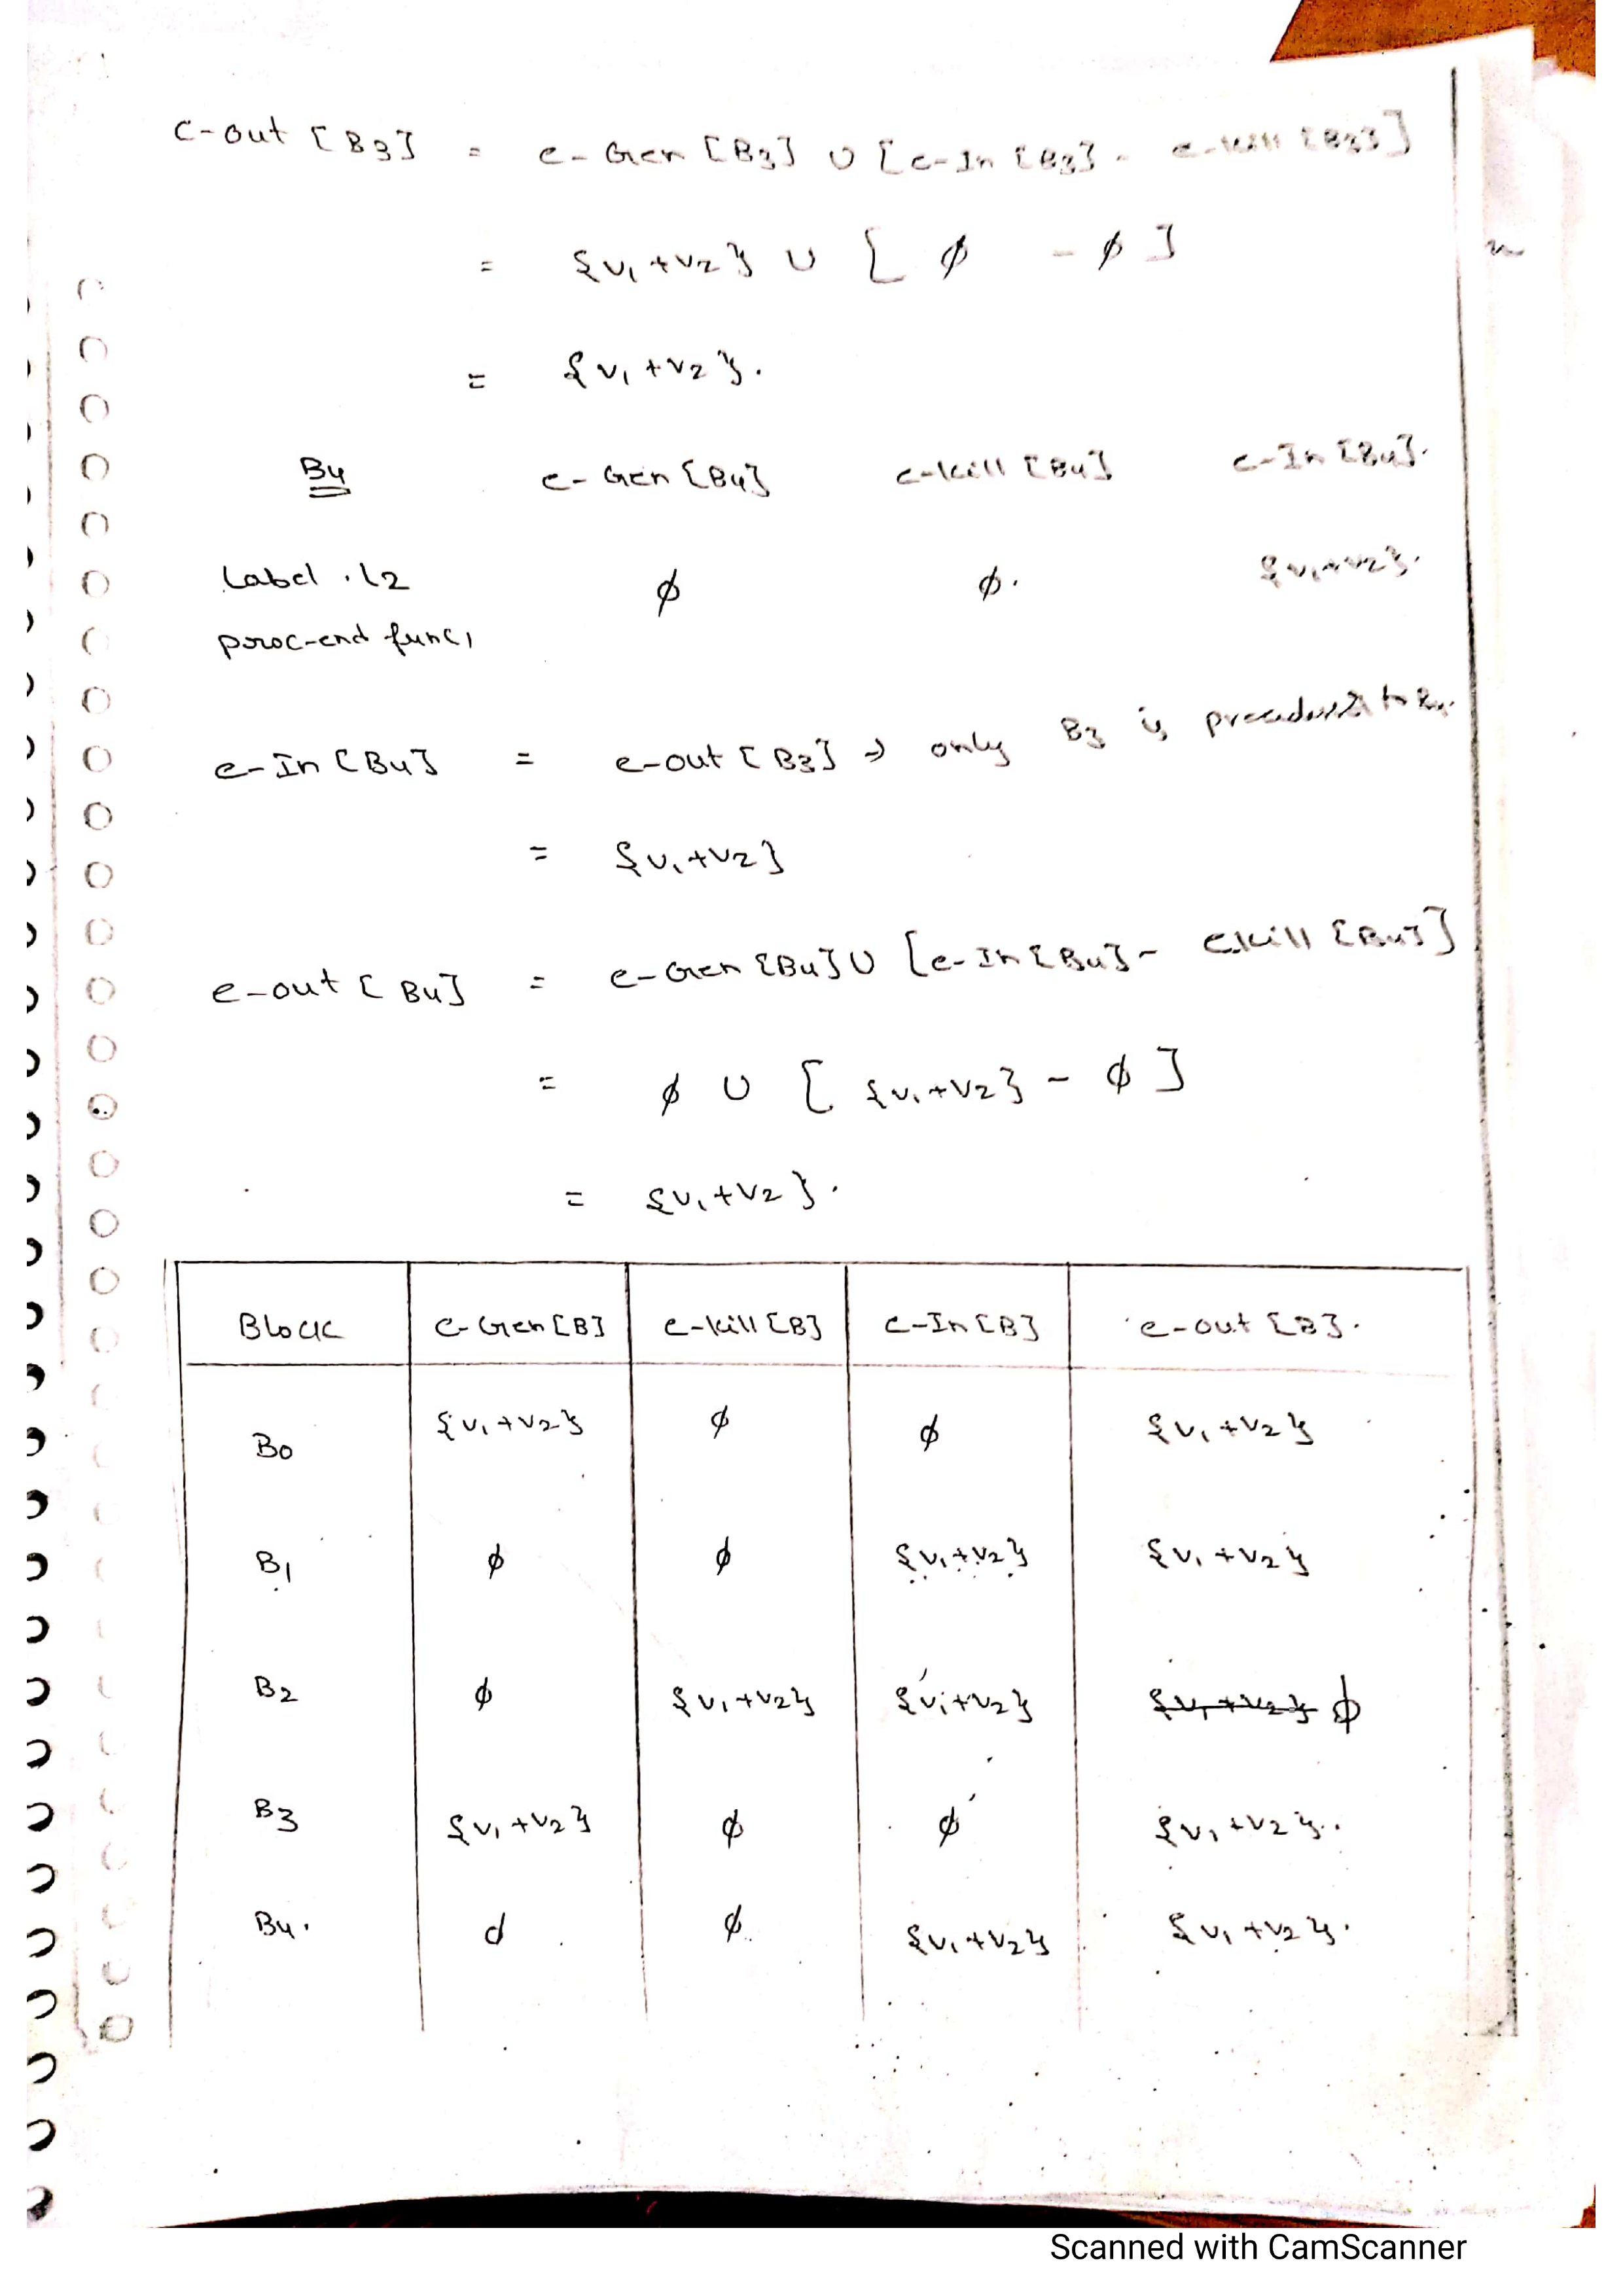 e-out [B3] = e-Gen [B3] ∪ [e-In [B3] - e-kill [B3]]
= {v1+v2} ∪ [ ϕ - ϕ ]
= {v1+v2}.
B4 e-Gen [B4] e-kill [B4] e-In [B4].
Label .L2 ϕ ϕ. {v1+v2}.
proc-end func1
e-In [B4] = e-out [B3] ⇒ only B3 is to B4.
= {v1+v2}
e-out [B4] = e-Gen [B4] ∪ [e-In [B4] - ekill [B4]]
= ϕ ∪ [ {v1+v2} - ϕ ]
= {v1+v2}.
Block e-Gen [B] e-kill [B] e-In [B] e-out [B].
B0 {v1+v2} ϕ ϕ {v1+v2}
B1 ϕ ϕ {v1+v2} {v1+v2}
B2 ϕ {v1+v2} {v1+v2} {v1+v2} ϕ
B3 {v1+v2} ϕ ϕ {v1+v2}.
B4. d ϕ. {v1+v2} {v1+v2}.
Scanned with CamScanner